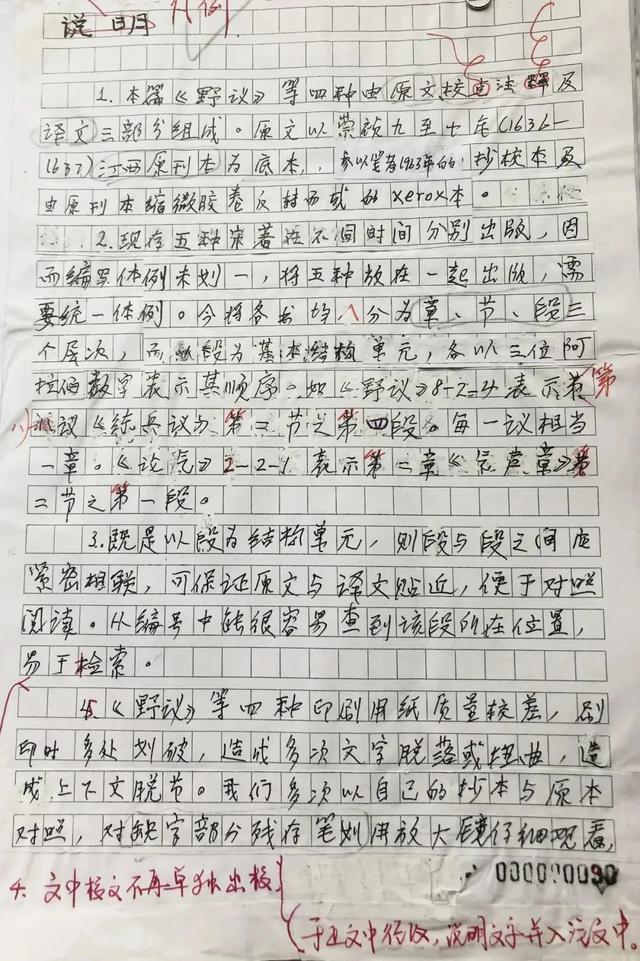 凡例
说明
1.本篇《野议》等四种由原文校点注释及
译文三部分组成。原文以崇祯九至十年(1636—
1637)江西原刊本为底本,参以笔者1963年的抄校本及
由原刊本缩微胶卷反转而成的xerox本。
2.现存五种宋著在不同时间分别出版,因
而编写体例未划一,将五种放在一起出版,需
要统一体例。今将各书均分为章、节、段三
个层次,而以段为基本结构单元,各以三位阿
拉伯数字表示其顺序。如《野议》8-2-4表示第
八议《练兵议》第二节之第四段。每一议相当
一章。《论气》2-2-1表示第二章《气声章》第
二节之第一段。
3.既是以段为结构单元,则段与段之间应
紧密相联,可保证原文与译文贴近,便于对照
阅读。从编号中能很容易查到该段所在位置,
易于检索。
4.《野议》等四种印刷用纸质量较差,刷
印时多处划破,造成多次文字脱落或扭曲,造
成上下文脱节。我们多次以自己的抄本与原本
对照,对缺字部分残存笔划用放大镜仔细观看,
000020090
4.文中校文不再单独出校
于正文中径改,说明文字并入注文中。